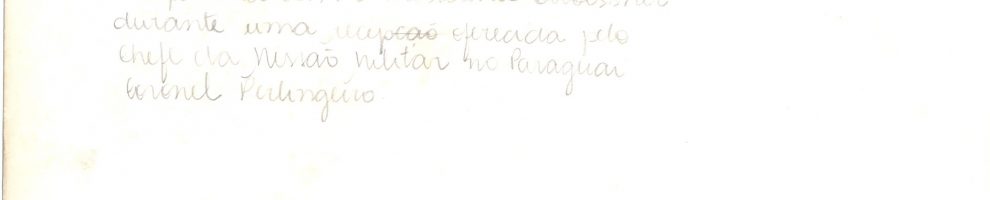 durante uma recepção oferecida pelo
Chefe da Missão Militar no Paraguai
Coronel Perlingeiro.